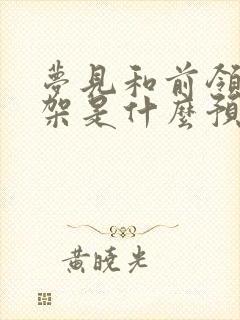 夢見和前領
架是什麼預
黃曉光